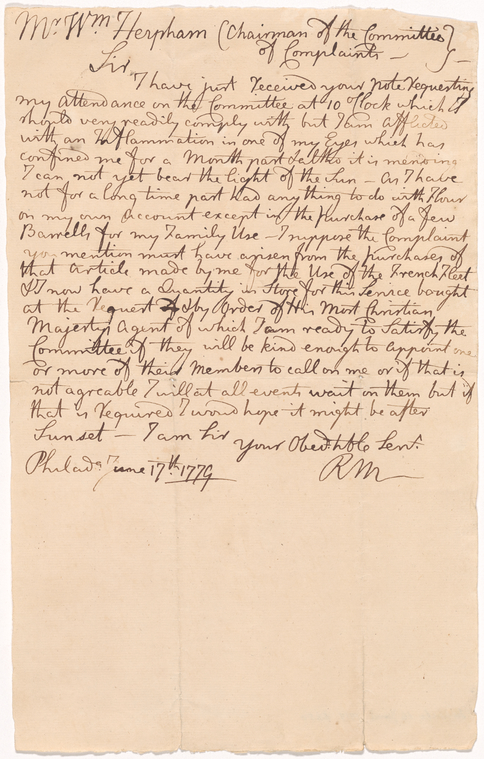 Mr. Wm. Herpham (Chairman of the Committee
of Complaints —
Sir,
I have just received your Note requesting
my Attendance on the Committee at 10 oClock which I
should very readily comply with but I am afflicted
with an Inflammation in one of my Eyes which has
confined me for a Month past & altho it is mending
I can not yet bear the light of the Sun — As I have
not for a long time past had any thing to do with Flour
on my own Account except in the Purchase of a few
Barrells for my Family Use — I suppose the Complaint
you mention must have arisen from the purchases of
that Article made by me for the Use of the French Fleet
& I now have a Quantity in Store for this Service bought
at the Request & by Order of His Most Christian
Majestys Agent of which I am ready to Satisfy the
Committee if they will be kind enough to appoint one
or more of their Members to call on me or if that is
not agreable I will at all events wait on them but if
that is required I woud hope it might be after
Sunset — I am Sir
your Obedt hble Servt.
Philada. June 17th. 1779 RM